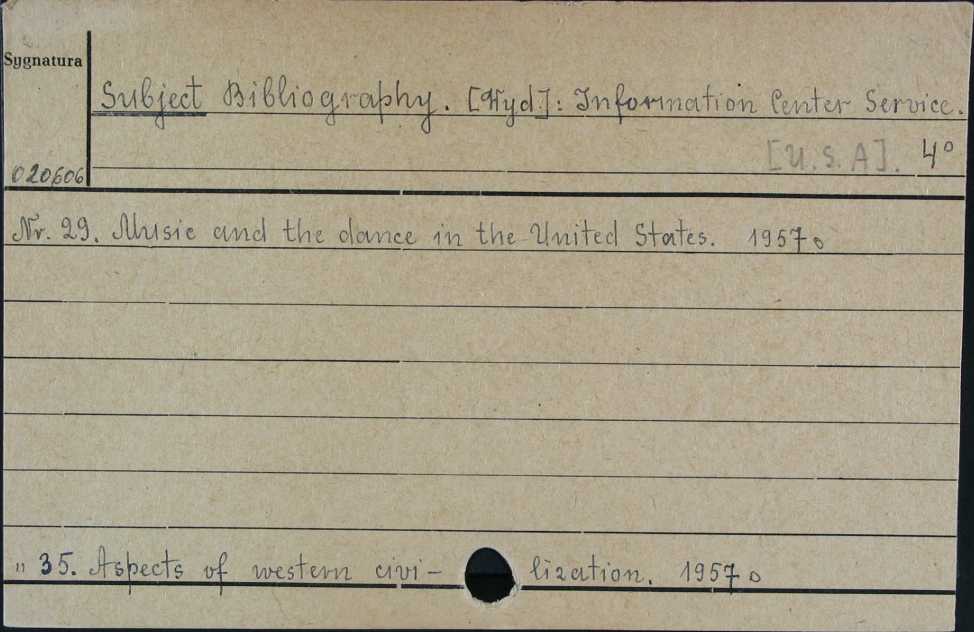 Sygnatura
Subject Bibliography. [Wyd.]: Information Center Service.
[U.S.A]. 4°
020606
Nr. 29. Music and the dance in the United States. 1957
" 35. Aspects of western civi- lization. 1957